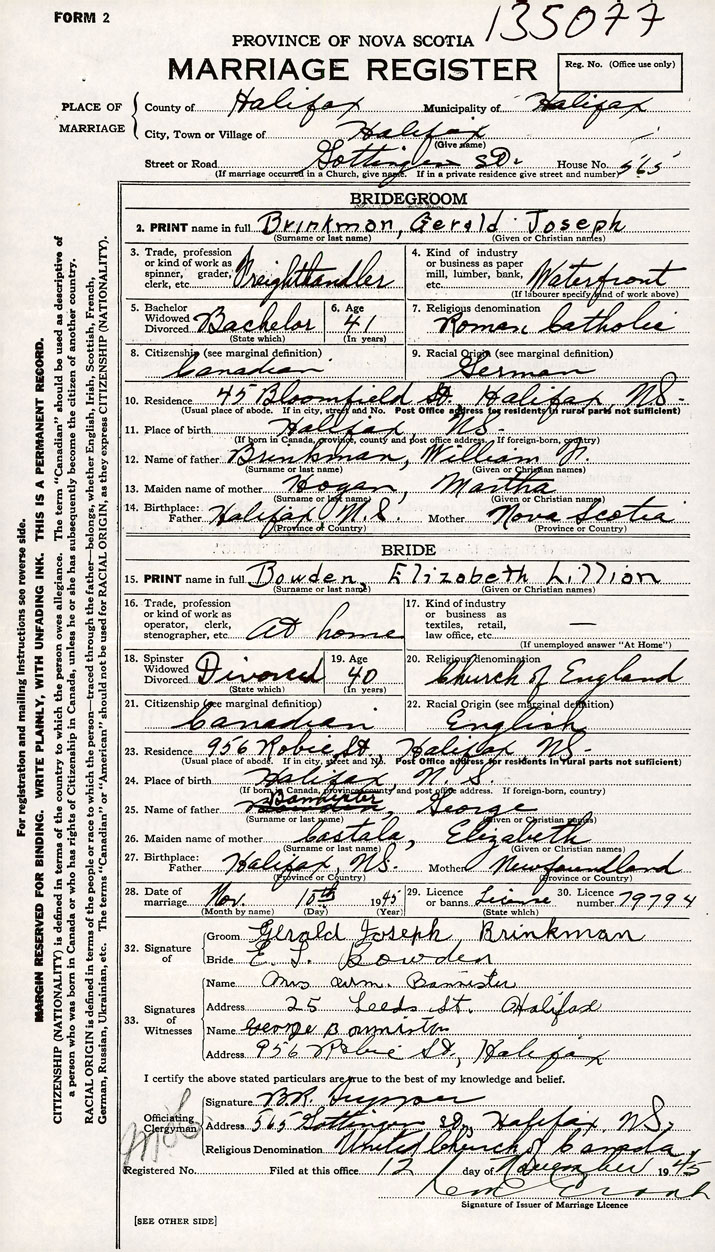 FORM 2
135077
PROVINCE OF NOVA SCOTIA
MARRIAGE REGISTER
Reg. No. (Office use only)
PLACE OF MARRIAGE
County of Halifax Municipality of Halifax
City, Town or Village of Halifax
(Give name)
Street or Road Gottingen St. House No. 565
(If marriage occurred in a Church, give name. If in a private residence give street and number)
BRIDEGROOM
2. PRINT name in full Brinkman, Gerald Joseph
(Surname or last name) (Given or Christian names)
3. Trade, profession or kind of work as spinner, grader, clerk, etc. Freighthandler
4. Kind of industry or business as paper mill, lumber, bank, etc. Waterfront
(If labourer specify kind of work above)
5. Bachelor Widowed Divorced Bachelor
(State which)
6. Age 41
(In years)
7. Religious denomination Roman Catholic
8. Citizenship (see marginal definition) Canadian
9. Racial Origin (see marginal definition) German
10. Residence 45 Bloomfield St. Halifax, NS-
(Usual place of abode. If in city, street and No. Post Office address for residents in rural parts not sufficient)
11. Place of birth Halifax, NS-
(If born in Canada, province, county and post office address. If foreign-born, country)
12. Name of father Brinkman, William Jr.
(Surname or last name) (Given or Christian names)
13. Maiden name of mother Hogan, Martha
(Surname or last name) (Given or Christian names)
14. Birthplace: Father Halifax, N.S. Mother Nova Scotia
(Province or Country) (Province or Country)
BRIDE
15. PRINT name in full Bowden, Elizabeth Lillion
(Surname or last name) (Given or Christian names)
16. Trade, profession or kind of work as operator, clerk, stenographer, etc. At home
17. Kind of industry or business as textiles, retail, law office, etc. —
(If unemployed answer "At Home")
18. Spinster Widowed Divorced Divorced
(State which)
19. Age 40
(In years)
20. Religious denomination Church of England
21. Citizenship (see marginal definition) Canadian
22. Racial Origin (see marginal definition) English
23. Residence 956 Robie St., Halifax, NS-
(Usual place of abode. If in city, street and No. Post Office address for residents in rural parts not sufficient)
24. Place of birth Halifax, N.S.
(If born in Canada, province, county and post office address. If foreign-born, country)
25. Name of father Bannister, George
(Surname or last name) (Given or Christian names)
26. Maiden name of mother Castala, Elizabeth
(Surname or last name) (Given or Christian names)
27. Birthplace: Father Halifax, NS. Mother Newfoundland
(Province or Country) (Province or Country)
28. Date of marriage Nov. 10th 1945
(Month by name) (Day) (Year)
29. Licence or banns License
(State which)
30. Licence number 79794
32. Signature of
Groom Gerald Joseph, Brinkman
Bride E. L. Bowden
33. Signatures of Witnesses
Name Mrs Wm. Bannister
Address 25 Leeds St. Halifax
Name George Bannister
Address 956 Robie St., Halifax
I certify the above stated particulars are true to the best of my knowledge and belief.
Officiating Clergyman
Signature
Address 565 Gottingen St., Halifax, NS.
Religious Denomination United Church of Canada
Registered No. Filed at this office 12 day of November 1945
Signature of Issuer of Marriage Licence
[SEE OTHER SIDE]
For registration and mailing instructions see reverse side.
MARGIN RESERVED FOR BINDING. WRITE PLAINLY, WITH UNFADING INK. THIS IS A PERMANENT RECORD.
CITIZENSHIP (NATIONALITY) is defined in terms of the country to which the person owes allegiance. The term "Canadian" should be used as descriptive of
a person who was born in Canada or who has rights of Citizenship in Canada, unless he or she has subsequently become the citizen of another country.
RACIAL ORIGIN is defined in terms of the people or race to which the person—traced through the father—belongs, whether English, Irish, Scottish, French,
German, Russian, Ukrainian, etc. The terms "Canadian" or "American" should not be used for RACIAL ORIGIN, as they express CITIZENSHIP (NATIONALITY).